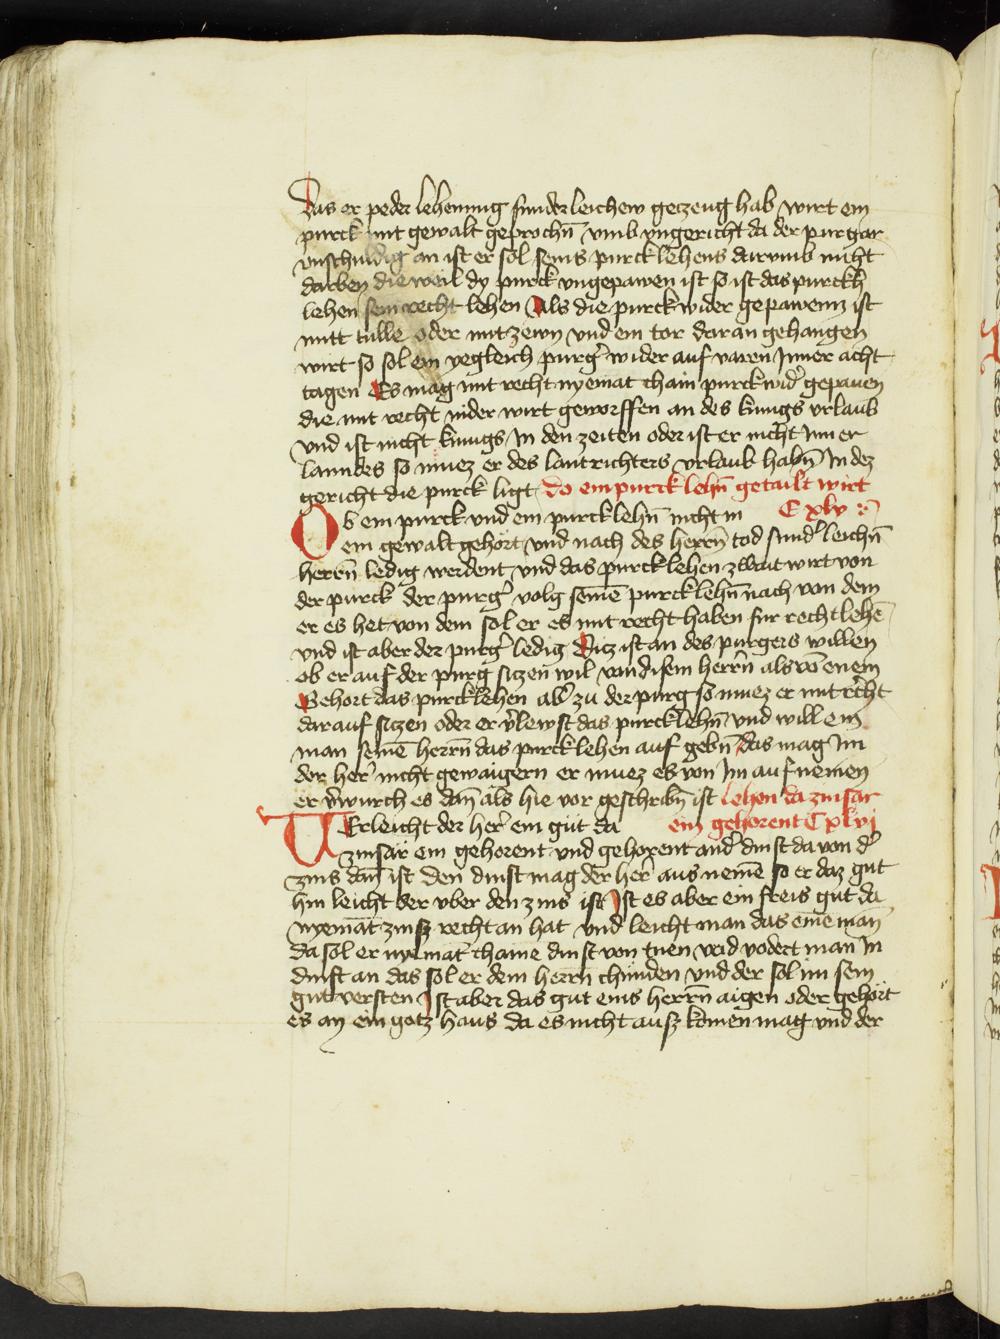 Das er peder lehenung sunderleichew geczeug hab wirt ein
purck mit gewalt geprochn̄ vmb vngericht da der purgar
vnschuldig an ist er sol seins purcklehens darvmb nicht
darben die weil dy purck vngepawen ist so ist das purckh
lehen sein recht lehen Als die purck wider gepawenn ist
mitt tulle oder mit zewn vnd ein tor daran gehangen
wirt so sol ein yegleich purgr̄ wider auf varen Inner acht
tagen Es mag mit recht nyemat chain purck widr̄ gepauen
die mit recht nider wirt geworffen an des kunigs vrlaub
vnd ist nicht kunigs In den zeiten oder ist er nicht Inner
lanndes so muez er des lantrichters vrlauk habn̄ In dez
gericht die purck ligt do ein purck lehn̄ getailt wirt
Ob ein purck vnd ein purcklehn̄ nicht in Cxlv
ein gewalt gehort vnd nach des herrn̄ tod sundr̄leichn̄
herrn̄ ledig werdent vnd das purcklehen zwait wirt von
der purck der purgr̄ volg seinē purcklehn̄ nach von dem
er es het von dem sol er es mit recht haben fur rechtlehē
vnd ist aber der purgr̄ ledig Dicz ist an des purgers willen
ob er auf der purg siczen wil von disem herrn̄ als vō enem
Gehort das purcklehen abr̄ zu der purg so muez er mit recht
darauf siczen oder er vr̄lewst das purcklehn̄ vnd will ein
man seinē herrn̄ das purcklehen auf gebn̄ das mag Im
der herr̄ nicht gewaigern er muez es von Im auf nemen
er vr̄wurch es dan̄ als hie vor geschribn̄ ist lehen da zinsar
VErleicht der herr̄ ein gut da ein gehorent Cxlvj
zinsär ein gehorent vnd gehorent andr̄ dinst da von dr̄
zins dan̄ ist den dinst mag der herr̄ aus nemē so er daz gut
hin leicht der vber den zins ist Ist es aber ein freis gut da
nyemāt zinsz recht an hat vnd leicht man das eine man
da sol er nyemāt chaine dinst von tuen vnd vodert man In
dinst an das sol er dem herrn̄ chünden vnd der sol im sein
gut versten Ist aber das gut eins herrn̄ aigen oder gehört
es an ein gotz haus da es nicht ausz komen mag vnd der